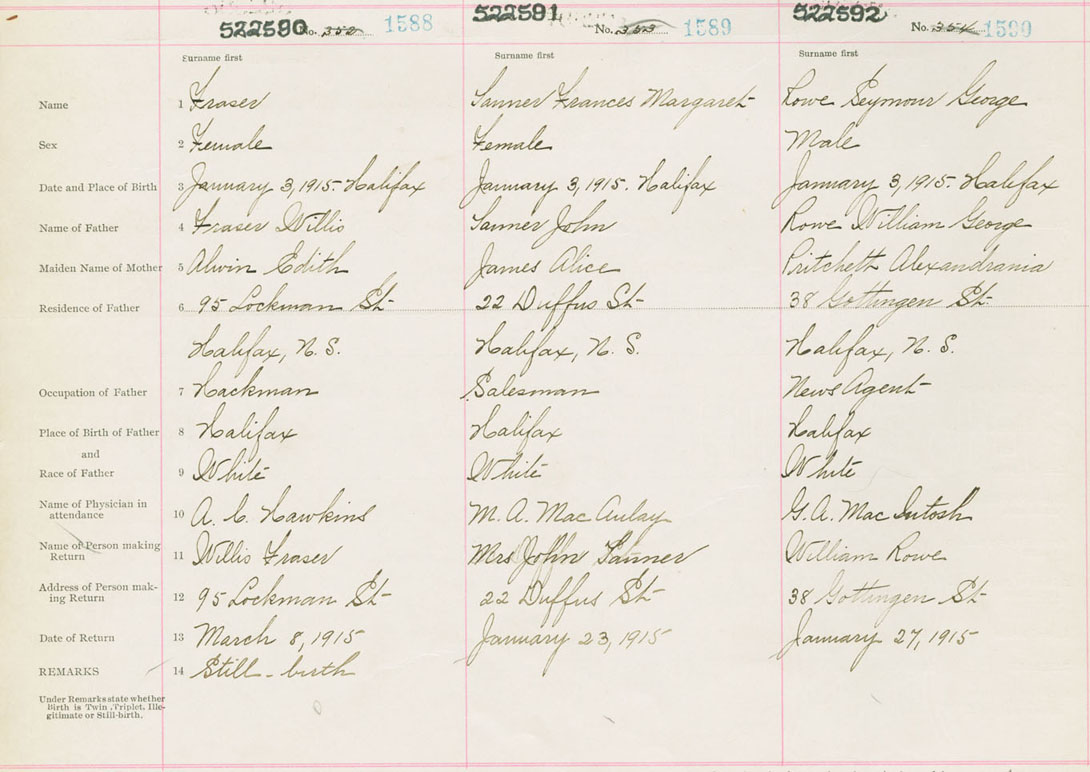 522590 No. 352 1588 522591 No. 353 1589 522592 No. 354 1590
Surname first Surname first Surname first
Name 1 Fraser Tanner Frances Margaret Rowe Seymour George
Sex 2 Female Female Male
Date and Place of Birth 3 January 3, 1915. Halifax January 3, 1915. Halifax January 3, 1915. Halifax
Name of Father 4 Fraser Willis Tanner John Rowe William George
Maiden Name of Mother 5 Alwin Edith James Alice Pritchett Alexandrania
Residence of Father 6 95 Lockman St 22 Duffus St 38 Gottingen St
Halifax, N. S. Halifax, N. S. Halifax, N. S.
Occupation of Father 7 Hackman Salesman News Agent
Place of Birth of Father 8 Halifax Halifax Halifax
and
Race of Father 9 White White White
Name of Physician in
attendance 10 A. C. Hawkins M. A. MacAulay G. A. MacIntosh
Name of Person making
Return 11 Willis Fraser Mrs John Tanner William Rowe
Address of Person mak-
ing Return 12 95 Lockman St 22 Duffus St 38 Gottingen St
Date of Return 13 March 8, 1915 January 23, 1915 January 27, 1915
REMARKS 14 Still-birth
Under Remarks state whether
Birth is Twin, Triplet, Ille-
gitimate or Still-birth.